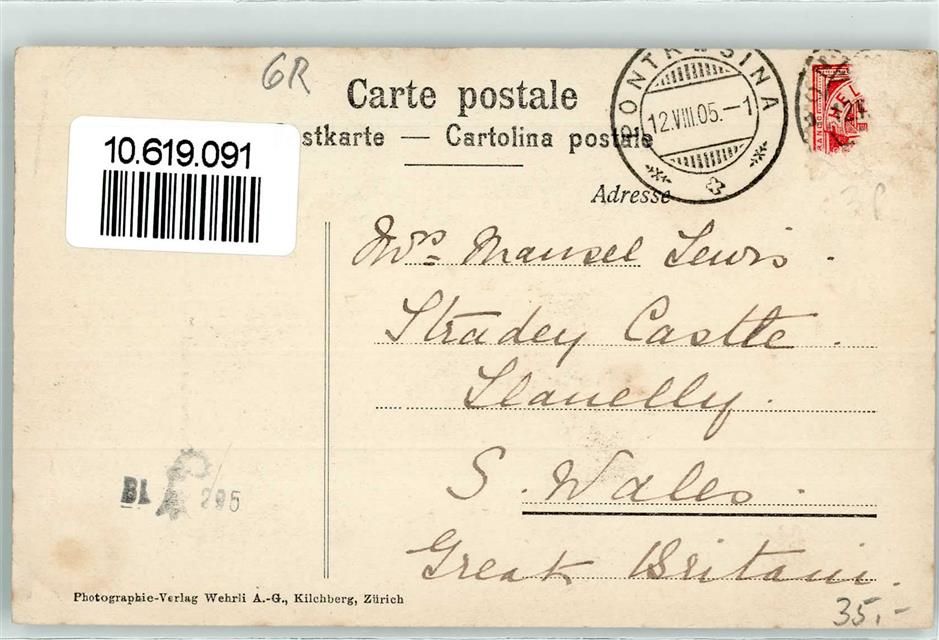 6R
Carte postale
stkarte — Cartolina postale
PONTRESINA
12.VIII.05.—1
HEL
10.619.091
Adresse
Mrs Mansel Lewis.
Stradey Castle.
Llanelly.
S. Wales.
Great Britain.
BL 295
Photographie-Verlag Wehrli A.-G., Kilchberg, Zürich
35,-